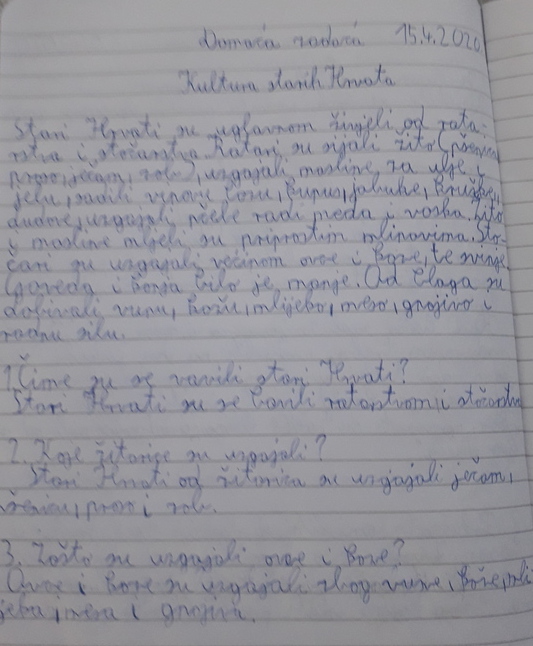 Domaća zadaća 15.4.2020
Kultura starih Hrvata
Stari Hrvati su uglavnom živjeli od rata-
rstva i stočarstva. Ratari su sijali žito (pšenica
proso, ječam, rob), uzgajali masline za ulje i
jelu, sadili vinovu lozu, kupus, jabuke, kruške,
dudove, uzgajali pčele radi meda i voska. Žito
i masline mljeli su priprostim mlinovima. Sto-
čari su uzgajali većinom ovce i koze, te svinje
Goveda i konja bilo je manje. Od blaga su
dobivali vunu, kožu, mlijeko, meso, gnojivo i
radnu silu.
1. Čime su se bavili stari Hrvati?
Stari Hrvati su se bavili ratarstvom i stočarstvo
2. Koje žitarice su uzgajali?
Stari Hrvati od žitarica su uzgajali ječam,
pšenicu, proso i rob.
3. Zašto su uzgajali ovce i koze?
Ovce i koze su uzgajali zbog vune, kože, mli
jeka, mesa i gnojiva.